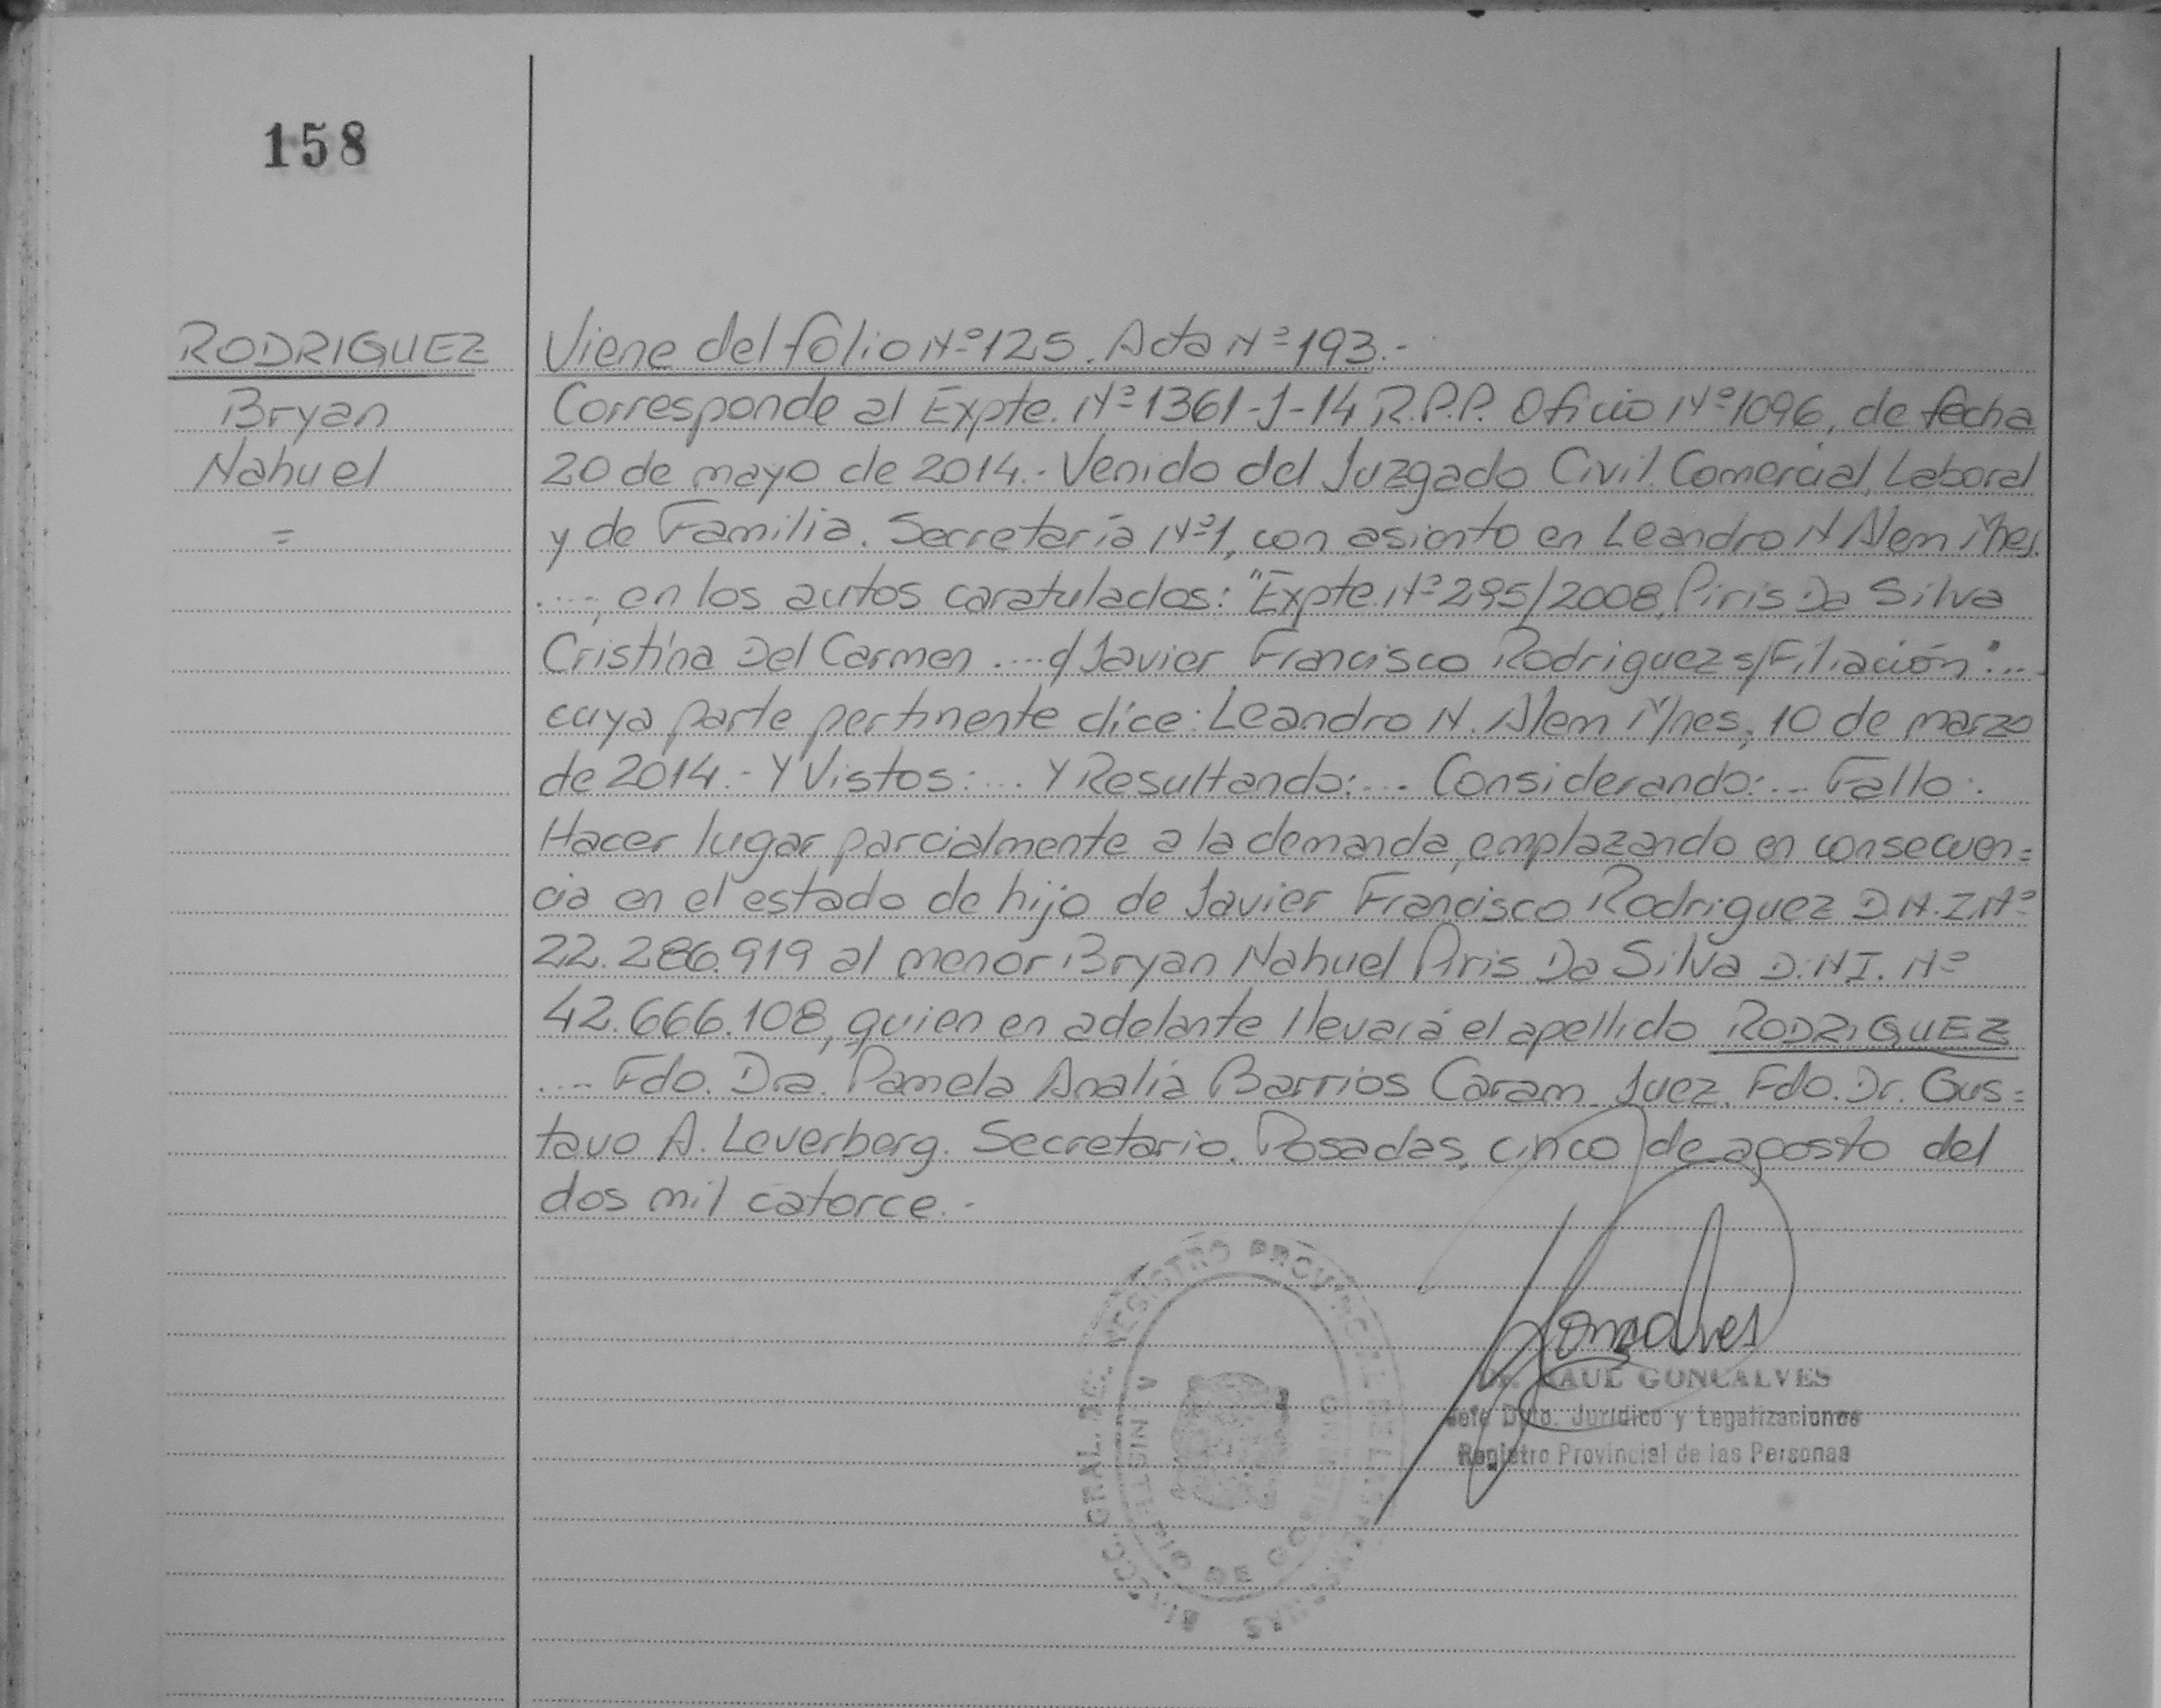 158
RODRIGUEZ
Bryan
Nahuel
=
Viene del folio Nº 125. Acta Nº 193.-
Corresponde al Expte. Nº 1361-J-14 R.P.P. Oficio Nº 1096, de fecha
20 de mayo de 2014.- Venido del Juzgado Civil. Comercial, Laboral
y de Familia. Secretaría Nº 1, con asiento en Leandro N Alem Mnes.
...., en los autos caratulados: "Expte. Nº 295/2008, Piris Da Silva
Cristina Del Carmen .... c/ Javier Francisco Rodriguez s/Filiación"...
cuya parte pertinente dice: Leandro N. Alem Mnes, 10 de marzo
de 2014.- Y Vistos:... Y Resultando:... Considerando:... Fallo:
Hacer lugar parcialmente a la demanda, emplazando en consecuen=
cia en el estado de hijo de Javier Francisco Rodriguez D.N.I. Nº
22.286.919 al menor Bryan Nahuel Piris Da Silva D.N.I. Nº
42.666.108, quien en adelante llevará el apellido RODRIGUEZ
.... Fdo. Dra. Pamela Analía Barrios Caram. Juez. Fdo. Dr. Gus=
tavo A. Leverberg. Secretario. Posadas, cinco de agosto del
dos mil catorce.-
Gonçalves
Dr. RAUL GONCALVES
Jefe Dpto. Jurídico y Legalizaciones
Registro Provincial de las Personas
GRAL. DEL REGISTRO PROVINCIAL DE LAS PERSONAS
DE GOBIERNO